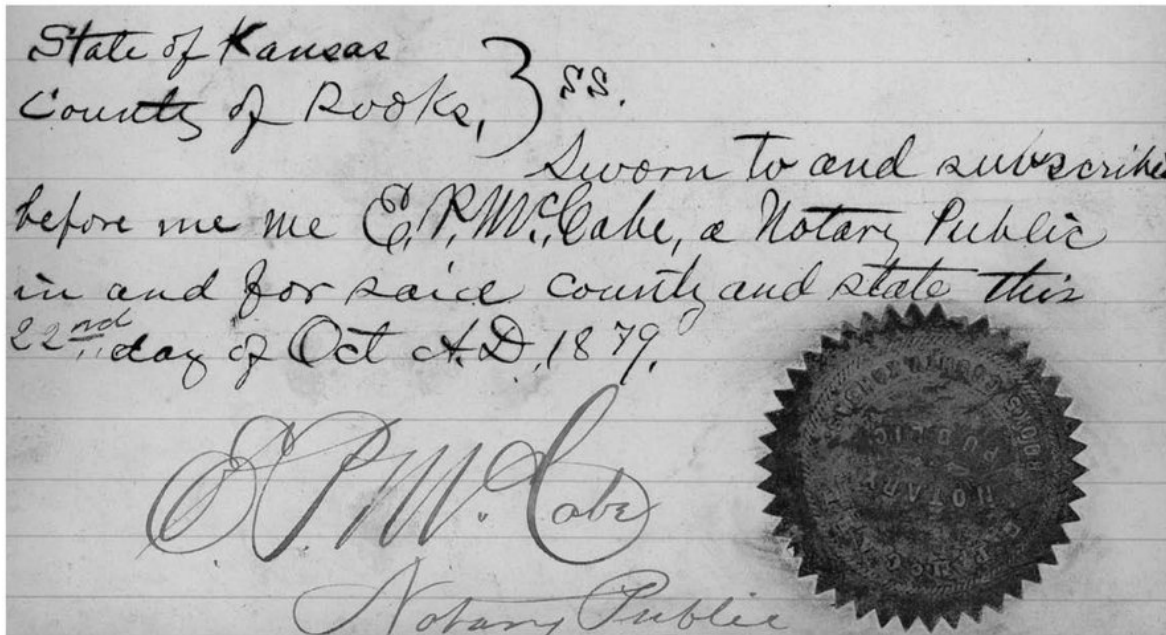 State of Kansas
County of Rooks, } SS.
Sworn to and subscribe
before me me E. P. McCabe, a Notary Public
in and for said county and state this
22nd day of Oct A.D. 1879.
E. P. McCabe
Notary Public
NOTARY
PUBLIC